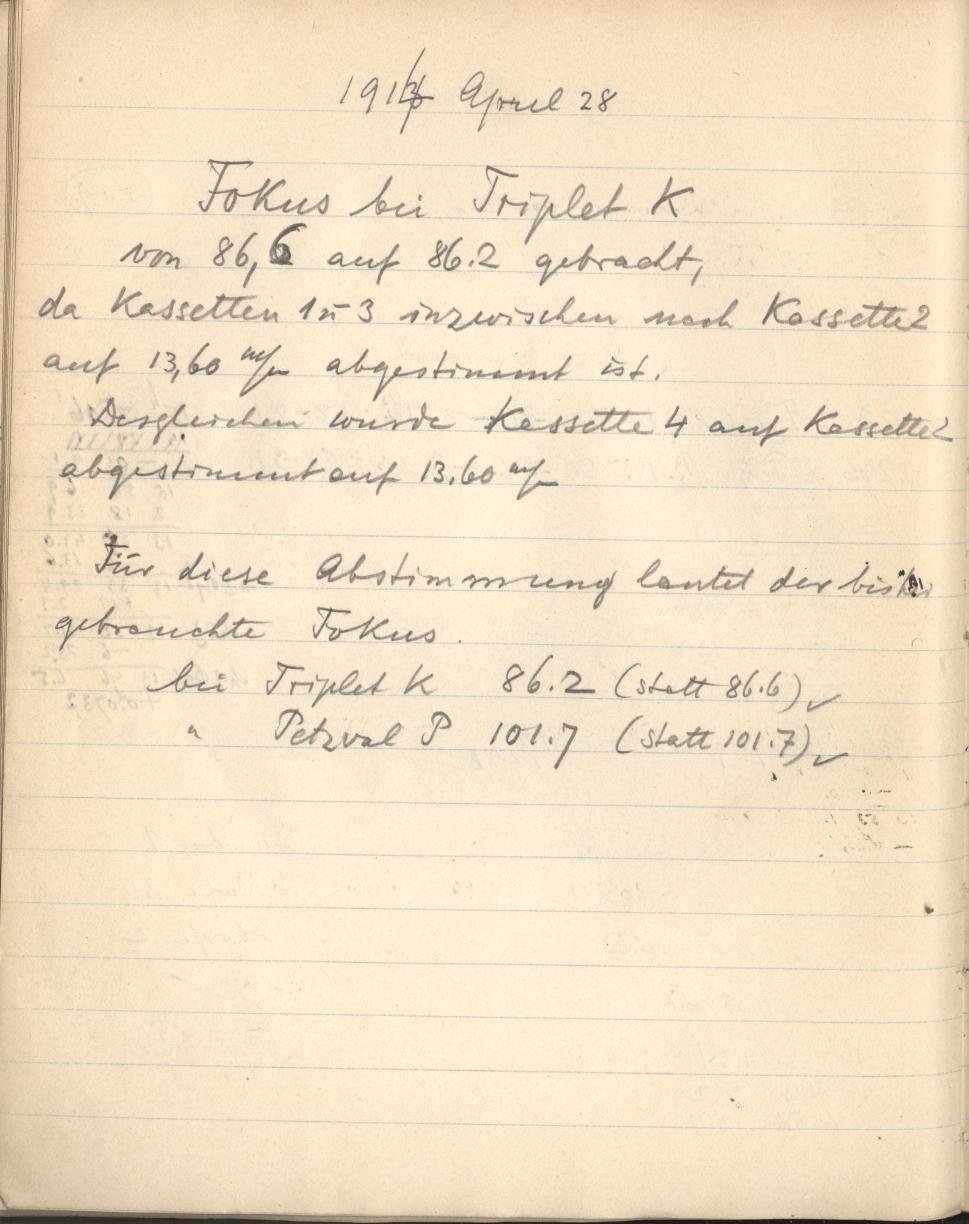 April 28
Fokus bei Triplet K
von 86,6 auf 86.2 gebracht,
da Kassetten 1 u 3 inzwischen nach Kassette 2
auf 13,60 m/m abgestimmt ist.
Desgleichen wurde Kassette 4 auf Kassette 2
abgestimmt auf 13.60 m/m
Für diese Abstimmung lautet der bisher
gebrauchte Fokus.
bei Triplet K 86.2 (statt 86.6) ✓
" Petzval P 101.7 (statt 101.7) ✓